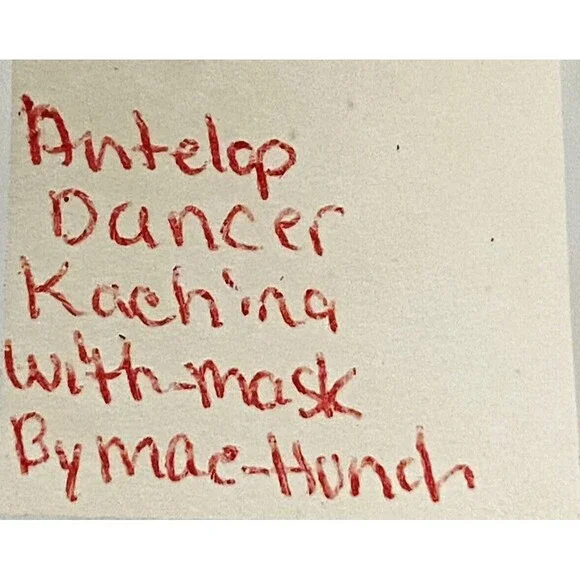 Antelop
Dancer
Kachina
With-mask
By Mae-Hunch